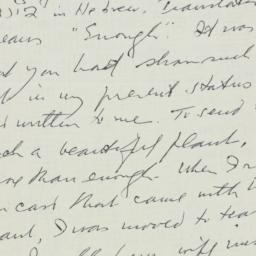 in Hebrew, translated
means "Enough". It was
you had shown such
in my present status
written to me. To send
such a beautiful plant,
more than enough. When I
card that came with
plant, I was moved to tears
wife